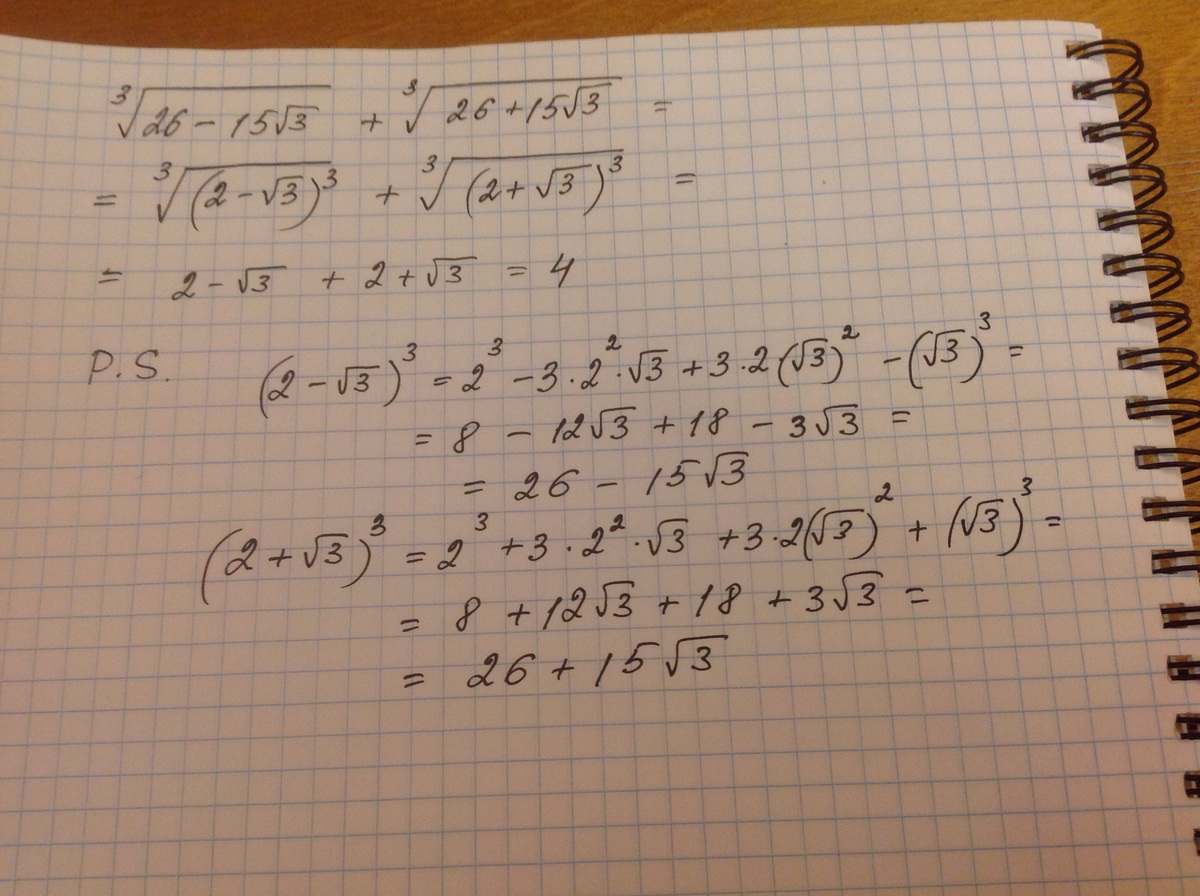 ∛(26 − 15√3) + ∛(26 + 15√3) =
= ∛((2 − √3)³) + ∛((2 + √3)³) =
= 2 − √3 + 2 + √3 = 4
P.S. (2 − √3)³ = 2³ − 3 · 2² · √3 + 3 · 2(√3)² − (√3)³ =
= 8 − 12√3 + 18 − 3√3 =
= 26 − 15√3
(2 + √3)³ = 2³ + 3 · 2² · √3 + 3 · 2(√3)² + (√3)³ =
= 8 + 12√3 + 18 + 3√3 =
= 26 + 15√3